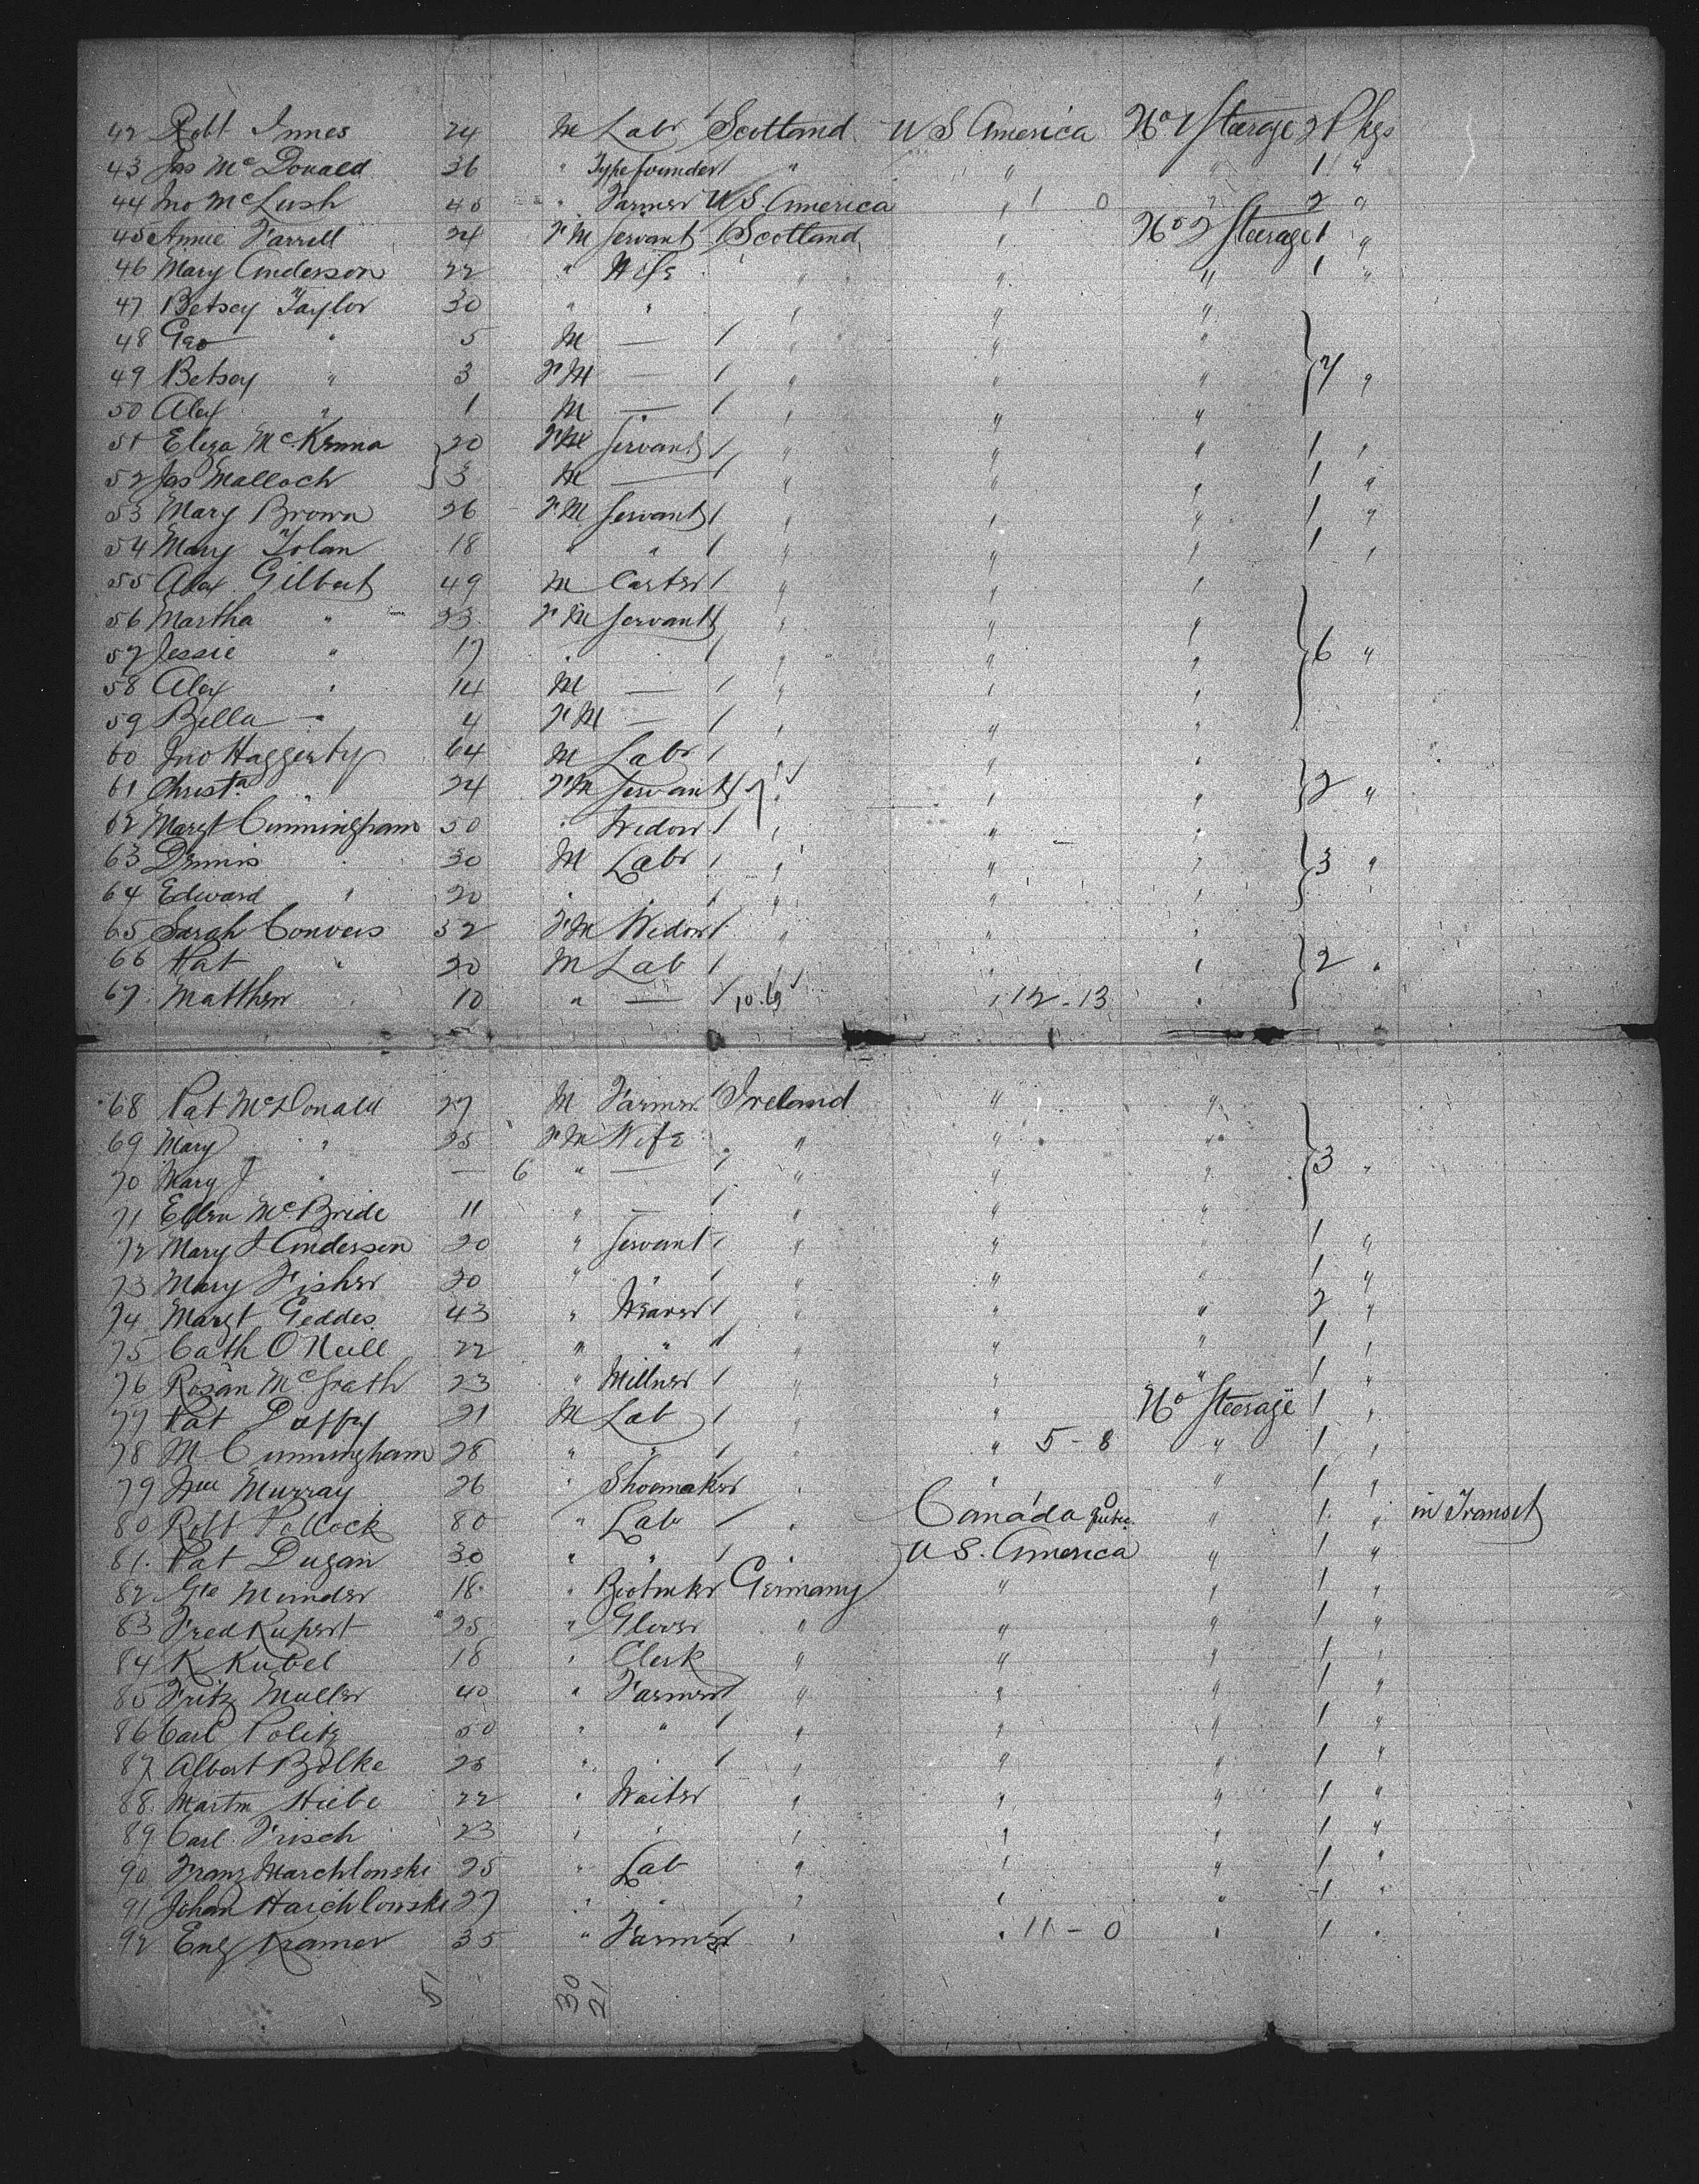 42 Robt Innes 24 M Labr Scotland U S America No 1 Steerage 2 Pkgs
43 Jas McDonald 36 " Typefounder " " " 1 "
44 Jno McLush 40 " Farmer U.S. America " 1 0 " 2 "
45 Annie Farrell 24 F M Servant Scotland " No 2 Steerage 1 "
46 Mary Anderson 22 " Wife " " " 1 "
47 Betsey Taylor 30 " " " " "
48 Geo " 5 M — " " "
49 Betsey " 3 F M — " " " 7 "
50 Alex " 1 M — " " "
51 Eliza McKenna 20 F M Servant " " " 1 "
52 Jas Malloch 3 M — " " " 1 "
53 Mary Brown 26 F M Servant " " " 1 "
54 Mary Tolan 18 " " " " " 1 "
55 Alex Gilbert 49 M Carter " " "
56 Martha " 23 F M Servant " " "
57 Jessie " 17 " " " " " 6 "
58 Alex " 14 M — " " "
59 Bella " 4 F M — " " "
60 Jno Haggerty 64 M Labr " " "
61 Christa " 24 F M Servant " " " 2 "
62 Margt Cunningham 50 " Widow " " "
63 Dennis " 30 M Labr " " " 3 "
64 Edward " 20 " " " " "
65 Sarah Convers 52 F M Widow " " "
66 Pat " 20 M Lab " " 2 "
67 Matthew " 10 " — 10.19 " 12-13 "
68 Pat McDonald 27 M Farmer Ireland " "
69 Mary " 25 F M Wife " " "
70 Mary J " — 6 " — " " " 3 "
71 Ellen McBride 11 " — " " "
72 Mary J Anderson 20 " Servant " " " 1 "
73 Mary Fisher 20 " " " " " 1 "
74 Margt Geddes 43 " Weaver " " " 2 "
75 Cath O Neill 22 " " " " " 1 "
76 Rosan McGrath 23 " Millner " " " 1 "
77 Pat Duffy 21 M Lab " " No Steerage 1 "
78 M Cunningham 28 " " " " 5-8 " 1 "
79 Murray 26 " Shoemaker " " " 1 "
80 Robt Pollock 80 " Labr " Canada Quebec " 1 " in Transit
81 Pat Dugan 30 " " " U S. America " 1 "
82 Munder 18 " Germany " " 1 "
83 Fred Rupert 25 " Glover " " " 1 "
84 R Kubel 18 " Clerk " " " 1 "
85 Fritz Muller 40 " Farmer " " " 1 "
86 Carl Politz 50 " " " " " 1 "
87 Albert Bolke 25 " " " " " 1 "
88 Martin Hiebe 22 " Waiter " " " 1 "
89 Carl Frisch 23 " " " " " 1 "
90 Franz Marchlonski 25 " Lab " " " 1 "
91 Johan Harchlonski 27 " " " " " 1 "
92 Eng Kramer 35 " Farmer " " 11-0 " 1 "
51 30 21